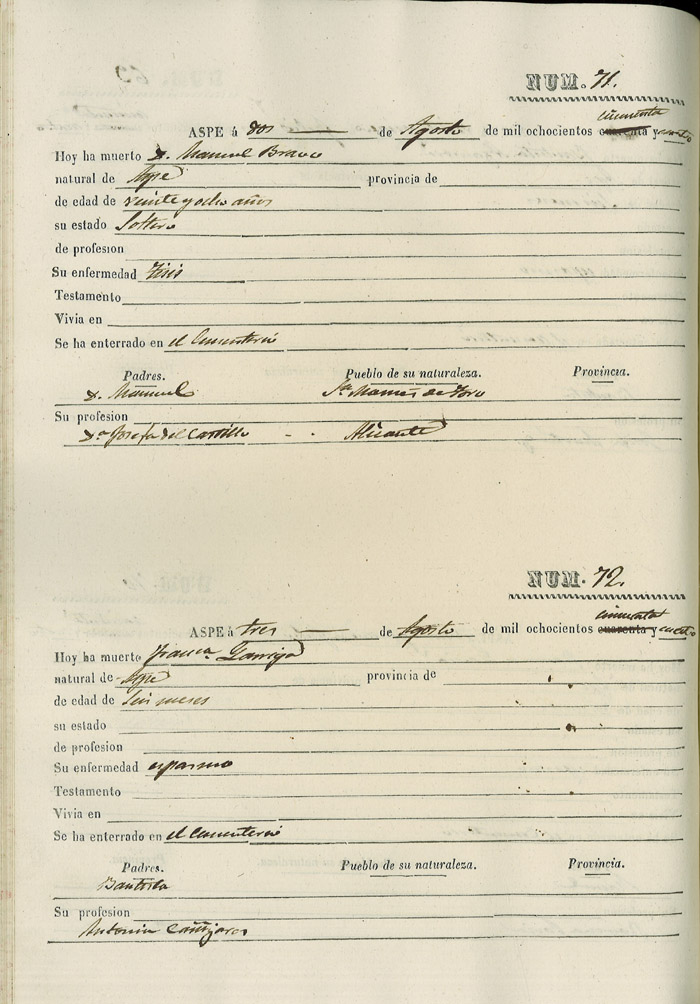 NUM. 71.
cincuenta
ASPE á dos de Agosto de mil ochocientos cuarenta y cuatro
Hoy ha muerto D. Manuel Bravo
natural de Aspe provincia de
de edad de veinte y ocho años
su estado Soltero
de profesion
Su enfermedad Tisis
Testamento
Vivia en
Se ha enterrado en el Cementerio
Padres. Pueblo de su naturaleza. Provincia.
D. Manuel Sn. Mamés de Toro
Su profesion
Da. Josefa del Castillo Alicante
NUM. 72.
cincuenta
ASPE á tres de Agosto de mil ochocientos cuarenta y cuatro
Hoy ha muerto Franca. Garriga
natural de Aspe provincia de
de edad de seis meses
su estado
de profesion
Su enfermedad espasmo
Testamento
Vivia en
Se ha enterrado en el Cementerio
Padres. Pueblo de su naturaleza. Provincia.
Bautista
Su profesion
Antonia Cañizares